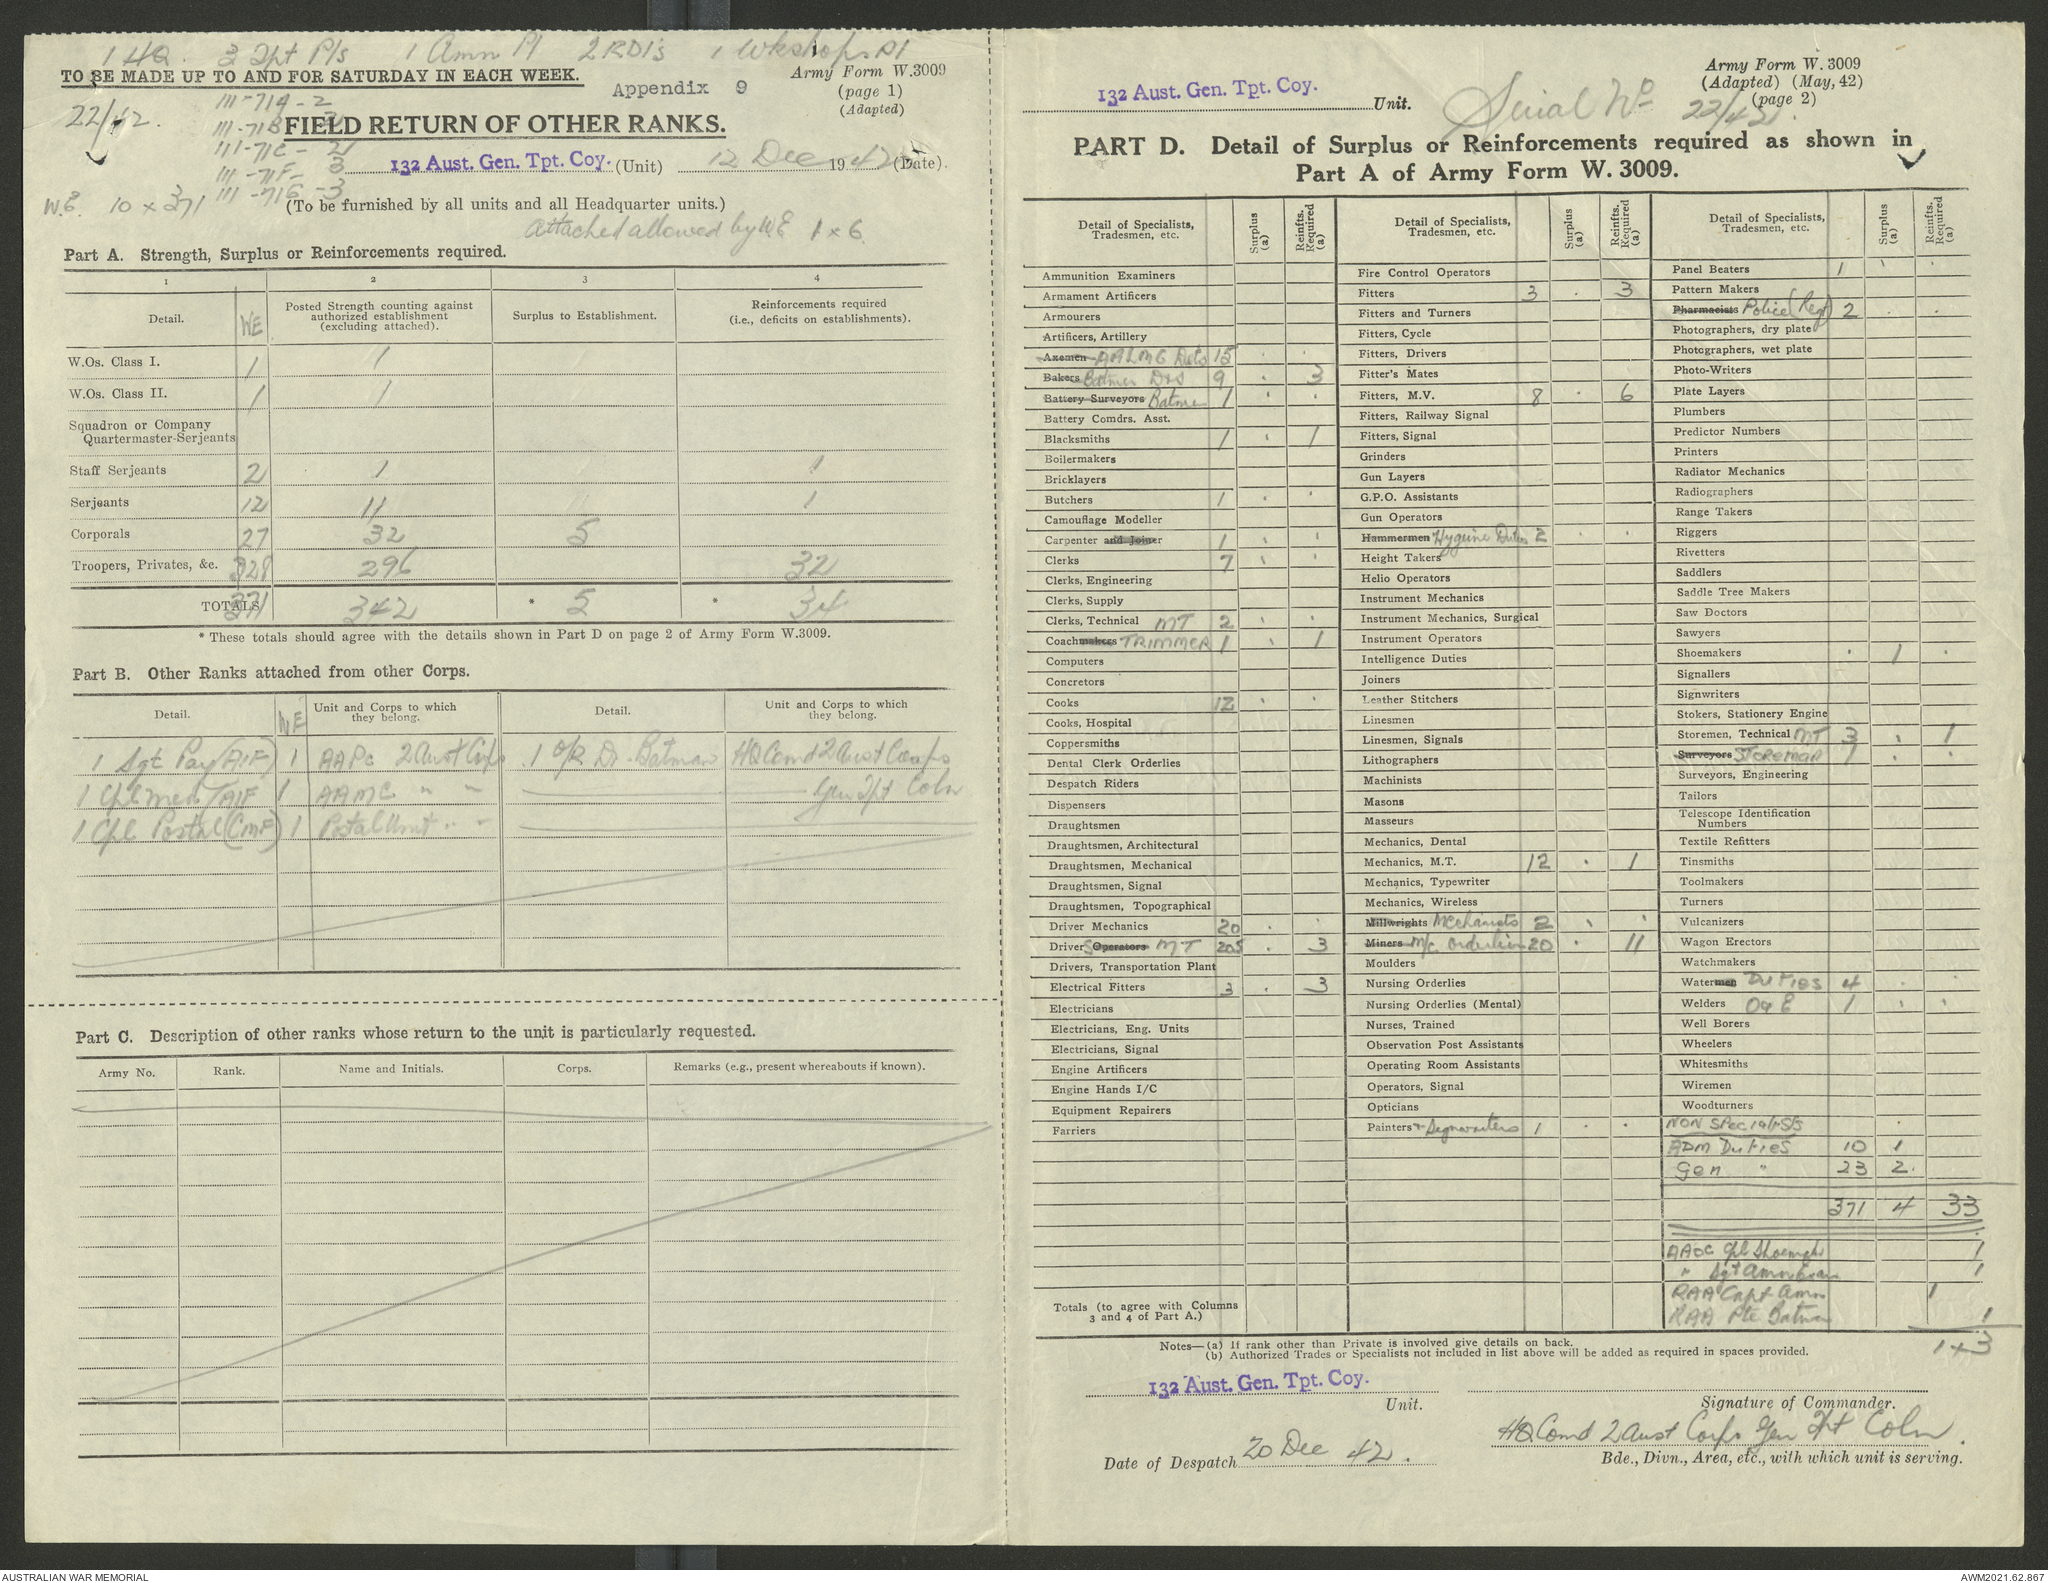 1 HQ. 3 Tpt Pls 1 Amn Pl 2 RDIs 1 Wkshops Pl
TO BE MADE UP TO AND FOR SATURDAY IN EACH WEEK.
Appendix 9
Army Form W.3009
(page 1)
(Adapted)
22/42.
111-71A - 2
111-71B - 3
111-71C - 2
111-71F - 3
111-71G - 3
FIELD RETURN OF OTHER RANKS.
132 Aust. Gen. Tpt. Coy. (Unit) 12 Dec 1942 (Date).
W.E. 10 x 371
(To be furnished by all units and all Headquarter units.)
Attached allowed by WE 1 x 6
Part A. Strength, Surplus or Reinforcements required.
1 2 3 4
Detail. WE Posted Strength counting against authorized establishment (excluding attached). Surplus to Establishment. Reinforcements required (i.e., deficits on establishments).
W.Os. Class I. 1 1
W.Os. Class II. 1 1
Squadron or Company
Quartermaster-Serjeants
Staff Serjeants 2 1 1
Serjeants 12 11 1
Corporals 27 32 5
Troopers, Privates, &c. 328 296 32
TOTALS 371 342 * 5 * 34
* These totals should agree with the details shown in Part D on page 2 of Army Form W.3009.
Part B. Other Ranks attached from other Corps.
Detail. WE Unit and Corps to which they belong. Detail. Unit and Corps to which they belong.
1 Sgt Pay (AIF) 1 AAPC 2 Aust Corps 1 O/R Dr. Batman HQ Comd 2 Aust Corps
1 Cpl Med (AIF 1 AAMC " " Gen Tpt Coln
1 Cpl Postal (CMF) 1 Postal Unit " "
Part C. Description of other ranks whose return to the unit is particularly requested.
Army No. Rank. Name and Initials. Corps. Remarks (e.g., present whereabouts if known).
132 Aust. Gen. Tpt. Coy. Unit.
Serial No 22/42.
Army Form W. 3009
(Adapted) (May, 42)
(page 2)
PART D. Detail of Surplus or Reinforcements required as shown in
Part A of Army Form W. 3009.
Detail of Specialists, Tradesmen, etc. Surplus (a) Reinfts. Required (a)
Ammunition Examiners
Armament Artificers
Armourers
Artificers, Artillery
Axemen AALMG Dets 15
Bakers Batmen Dvs 9 3
Battery Surveyors Batmen 1
Battery Comdrs. Asst.
Blacksmiths 1 1
Boilermakers
Bricklayers
Butchers 1
Camouflage Modeller
Carpenter and Joiner 1
Clerks 7
Clerks, Engineering
Clerks, Supply
Clerks, Technical MT 2
Coachmakers TRIMMER 1 1
Computers
Concretors
Cooks 12
Cooks, Hospital
Coppersmiths
Dental Clerk Orderlies
Despatch Riders
Dispensers
Draughtsmen
Draughtsmen, Architectural
Draughtsmen, Mechanical
Draughtsmen, Signal
Draughtsmen, Topographical
Driver Mechanics 20
Drivers Operators MT 205 3
Drivers, Transportation Plant
Electrical Fitters 3 3
Electricians
Electricians, Eng. Units
Electricians, Signal
Engine Artificers
Engine Hands I/C
Equipment Repairers
Farriers
Totals (to agree with Columns
3 and 4 of Part A.)
Detail of Specialists, Tradesmen, etc. Surplus (a) Reinfts. Required (a)
Fire Control Operators
Fitters 3 3
Fitters and Turners
Fitters, Cycle
Fitters, Drivers
Fitter's Mates
Fitters, M.V. 8 6
Fitters, Railway Signal
Fitters, Signal
Grinders
Gun Layers
G.P.O. Assistants
Gun Operators
Hammermen Hygiene Duties 2
Height Takers
Helio Operators
Instrument Mechanics
Instrument Mechanics, Surgical
Instrument Operators
Intelligence Duties
Joiners
Leather Stitchers
Linesmen
Linesmen, Signals
Lithographers
Machinists
Masons
Masseurs
Mechanics, Dental
Mechanics, M.T. 12 1
Mechanics, Typewriter
Mechanics, Wireless
Millwrights Mechanists 2
Miners M/c Orderlies 20 11
Moulders
Nursing Orderlies
Nursing Orderlies (Mental)
Nurses, Trained
Observation Post Assistants
Operating Room Assistants
Operators, Signal
Opticians
Painters + Signwriters 1
Detail of Specialists, Tradesmen, etc. Surplus (a) Reinfts. Required (a)
Panel Beaters 1
Pattern Makers
Pharmacists Police (Reg) 2
Photographers, dry plate
Photographers, wet plate
Photo-Writers
Plate Layers
Plumbers
Predictor Numbers
Printers
Radiator Mechanics
Radiographers
Range Takers
Riggers
Rivetters
Saddlers
Saddle Tree Makers
Saw Doctors
Sawyers
Shoemakers 1
Signallers
Signwriters
Stokers, Stationery Engine
Storemen, Technical MT 3 1
Surveyors STOREMAN 1
Surveyors, Engineering
Tailors
Telescope Identification
Numbers
Textile Refitters
Tinsmiths
Toolmakers
Turners
Vulcanizers
Wagon Erectors
Watchmakers
Watermen DUTIES 4
Welders O & E 1
Well Borers
Wheelers
Whitesmiths
Wiremen
Woodturners
NON SPECIALISTS
ADM DUTIES 10 1
Gen " 23 2.
371 4 33
AAOC Cpl Shoemaker 1
" Sgt Amn Exam 1
RAA Capt Amn 1
RAA Pte Batman 1
1 + 3
Notes—(a) If rank other than Private is involved give details on back.
(b) Authorized Trades or Specialists not included in list above will be added as required in spaces provided.
132 Aust. Gen. Tpt. Coy.
Unit.
Signature of Commander.
Date of Despatch 20 Dec 42.
HQ Comd 2 Aust Corps Gen Tpt Coln.
Bde., Divn., Area, etc., with which unit is serving.
AUSTRALIAN WAR MEMORIAL
AWM2021.62.867